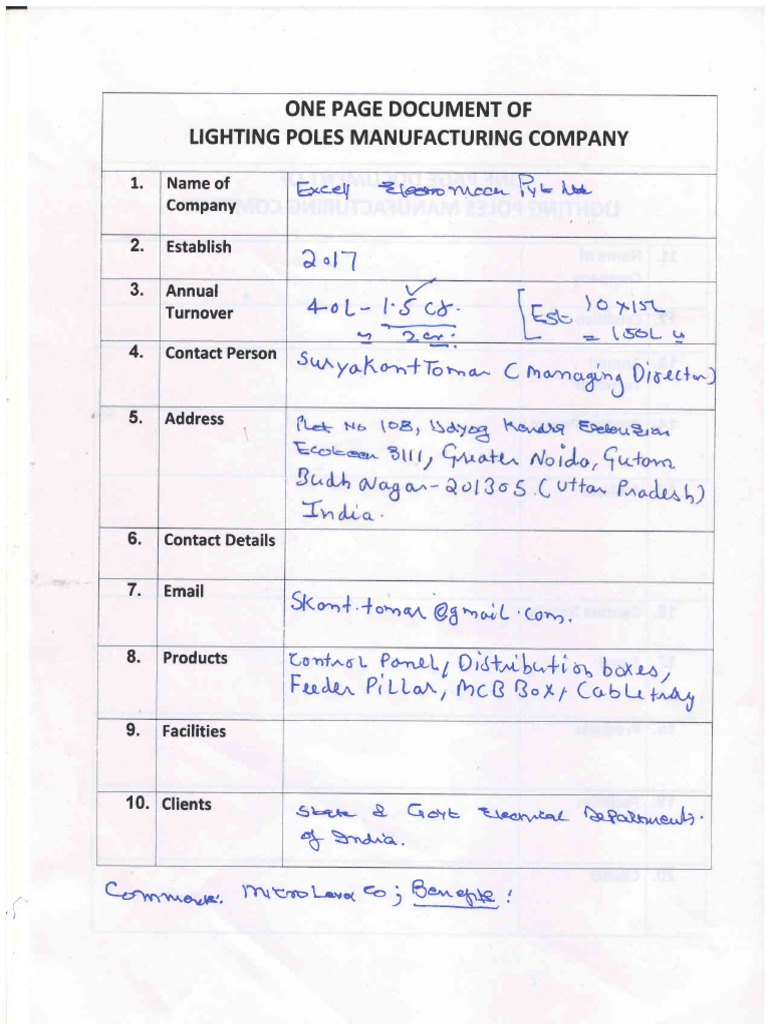 ONE PAGE DOCUMENT OF
LIGHTING POLES MANUFACTURING COMPANY
1. Name of Company Excell Electro Mech Pvt Ltd
2. Establish 2017
3. Annual Turnover 40L - 1.5 Cr. [Est 10 x 15L
2 cr. = 150L
4. Contact Person Suryakant Tomar (Managing Director)
5. Address Plot No 108, Udyog Kendra Extension
3111, Greater Noida, Gutam
Budh Nagar-201305. (Uttar Pradesh)
India.
6. Contact Details
7. Email Skant.tomar@gmail.com.
8. Products Control Panel, Distribution boxes,
Feeder Pillar, MCB Box, Cable tray
9. Facilities
10. Clients State & Govt Electrical Departments.
of India.
Micro Co;